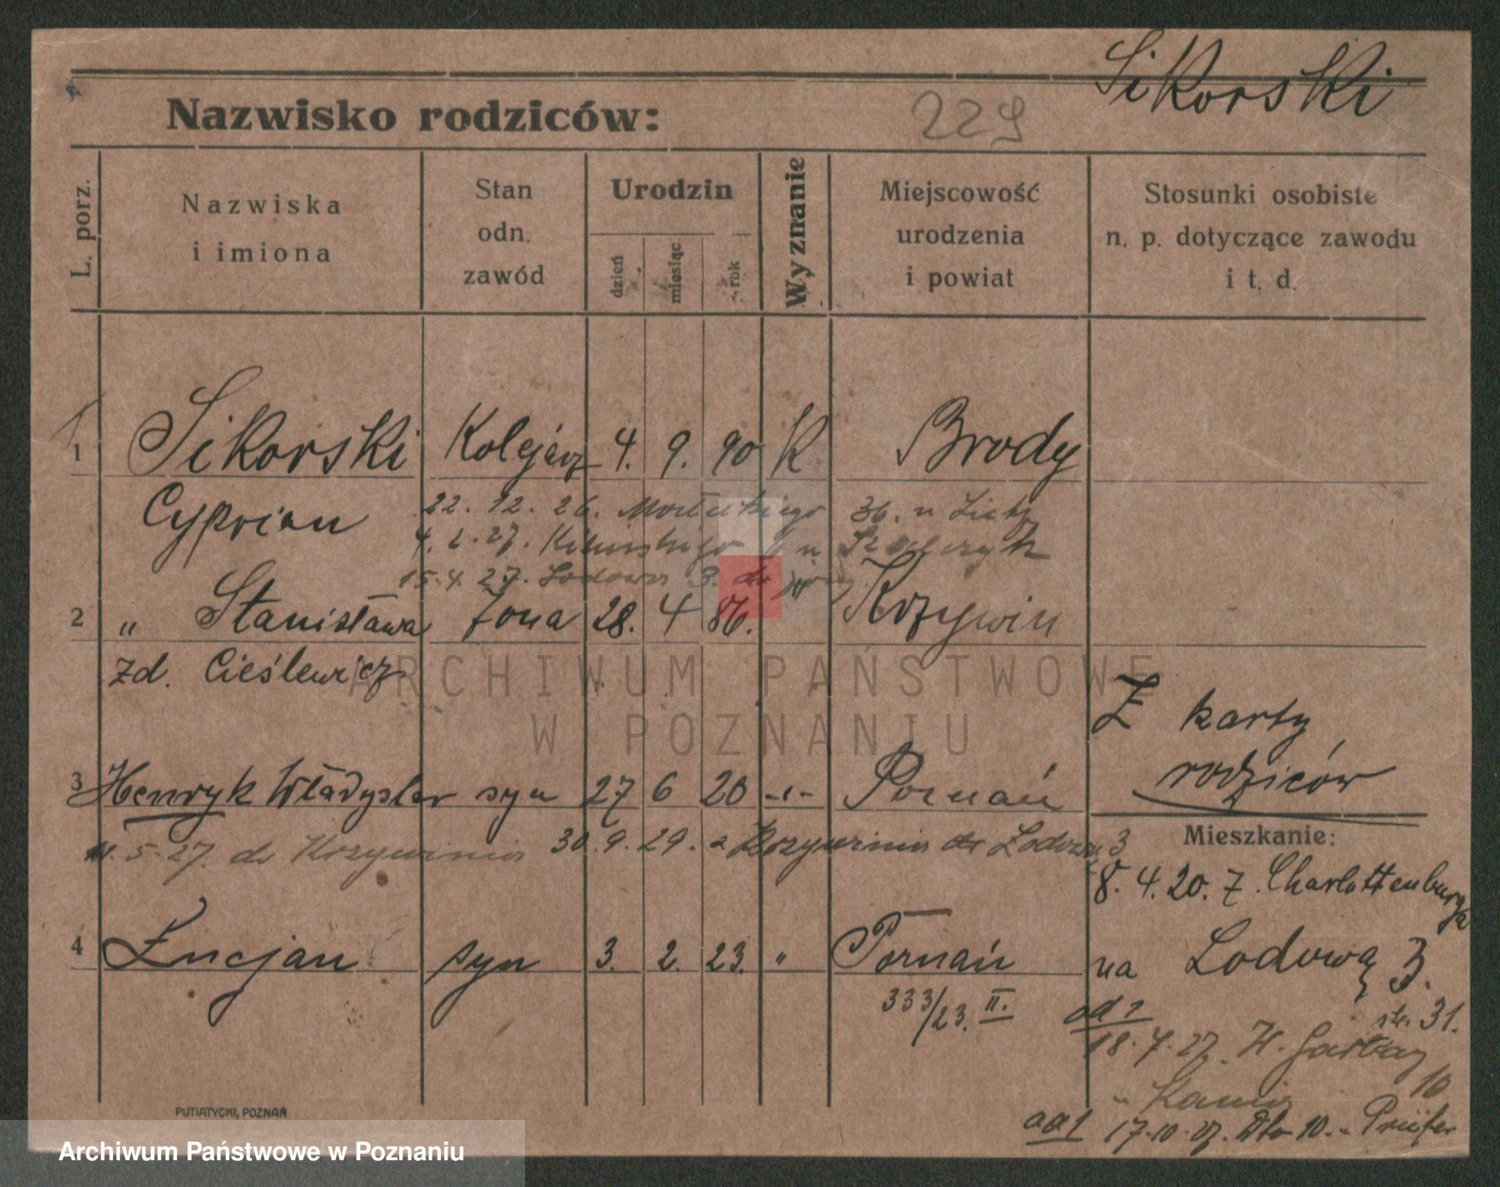 Sikorski
Nazwisko rodziców:
229
L. porz.
Nazwiska
i imiona
Stan
odn.
zawód
Urodzin
dzień
miesiąc
rok
Wyznanie
Miejscowość
urodzenia
i powiat
Stosunki osobiste
n. p. dotyczące zawodu
i t. d.
1 Sikorski Kolejarz 4. 9. 90 K. Brody
Cyprian 22. 12. 26. 36. u
4. 2. 27. u
15. 4. 27. Lodowa 3.
2 " Stanisława żona 28. 4 86. " Krzywiń
zd. Cieślewicz
Z karty
rodziców
3 Henryk Władysław syn 27 6 20 -"- Poznań
Mieszkanie:
5. 27. do Krzywinia 30. 9. 29. z Krzywinia do Lodowa 3
8. 4. 20. z Charlottenburga
4 Lucjan syn 3. 2. 23. " Poznań
na Lodową 3.
333/23. II.
str. 31.
od 1
18. 7. 27. H. Garbary
10
ad 1 17.10.27. 10. - Prüfer
PUTIATYCKI, POZNAŃ
ARCHIWUM PAŃSTWOWE
W POZNANIU
Archiwum Państwowe w Poznaniu